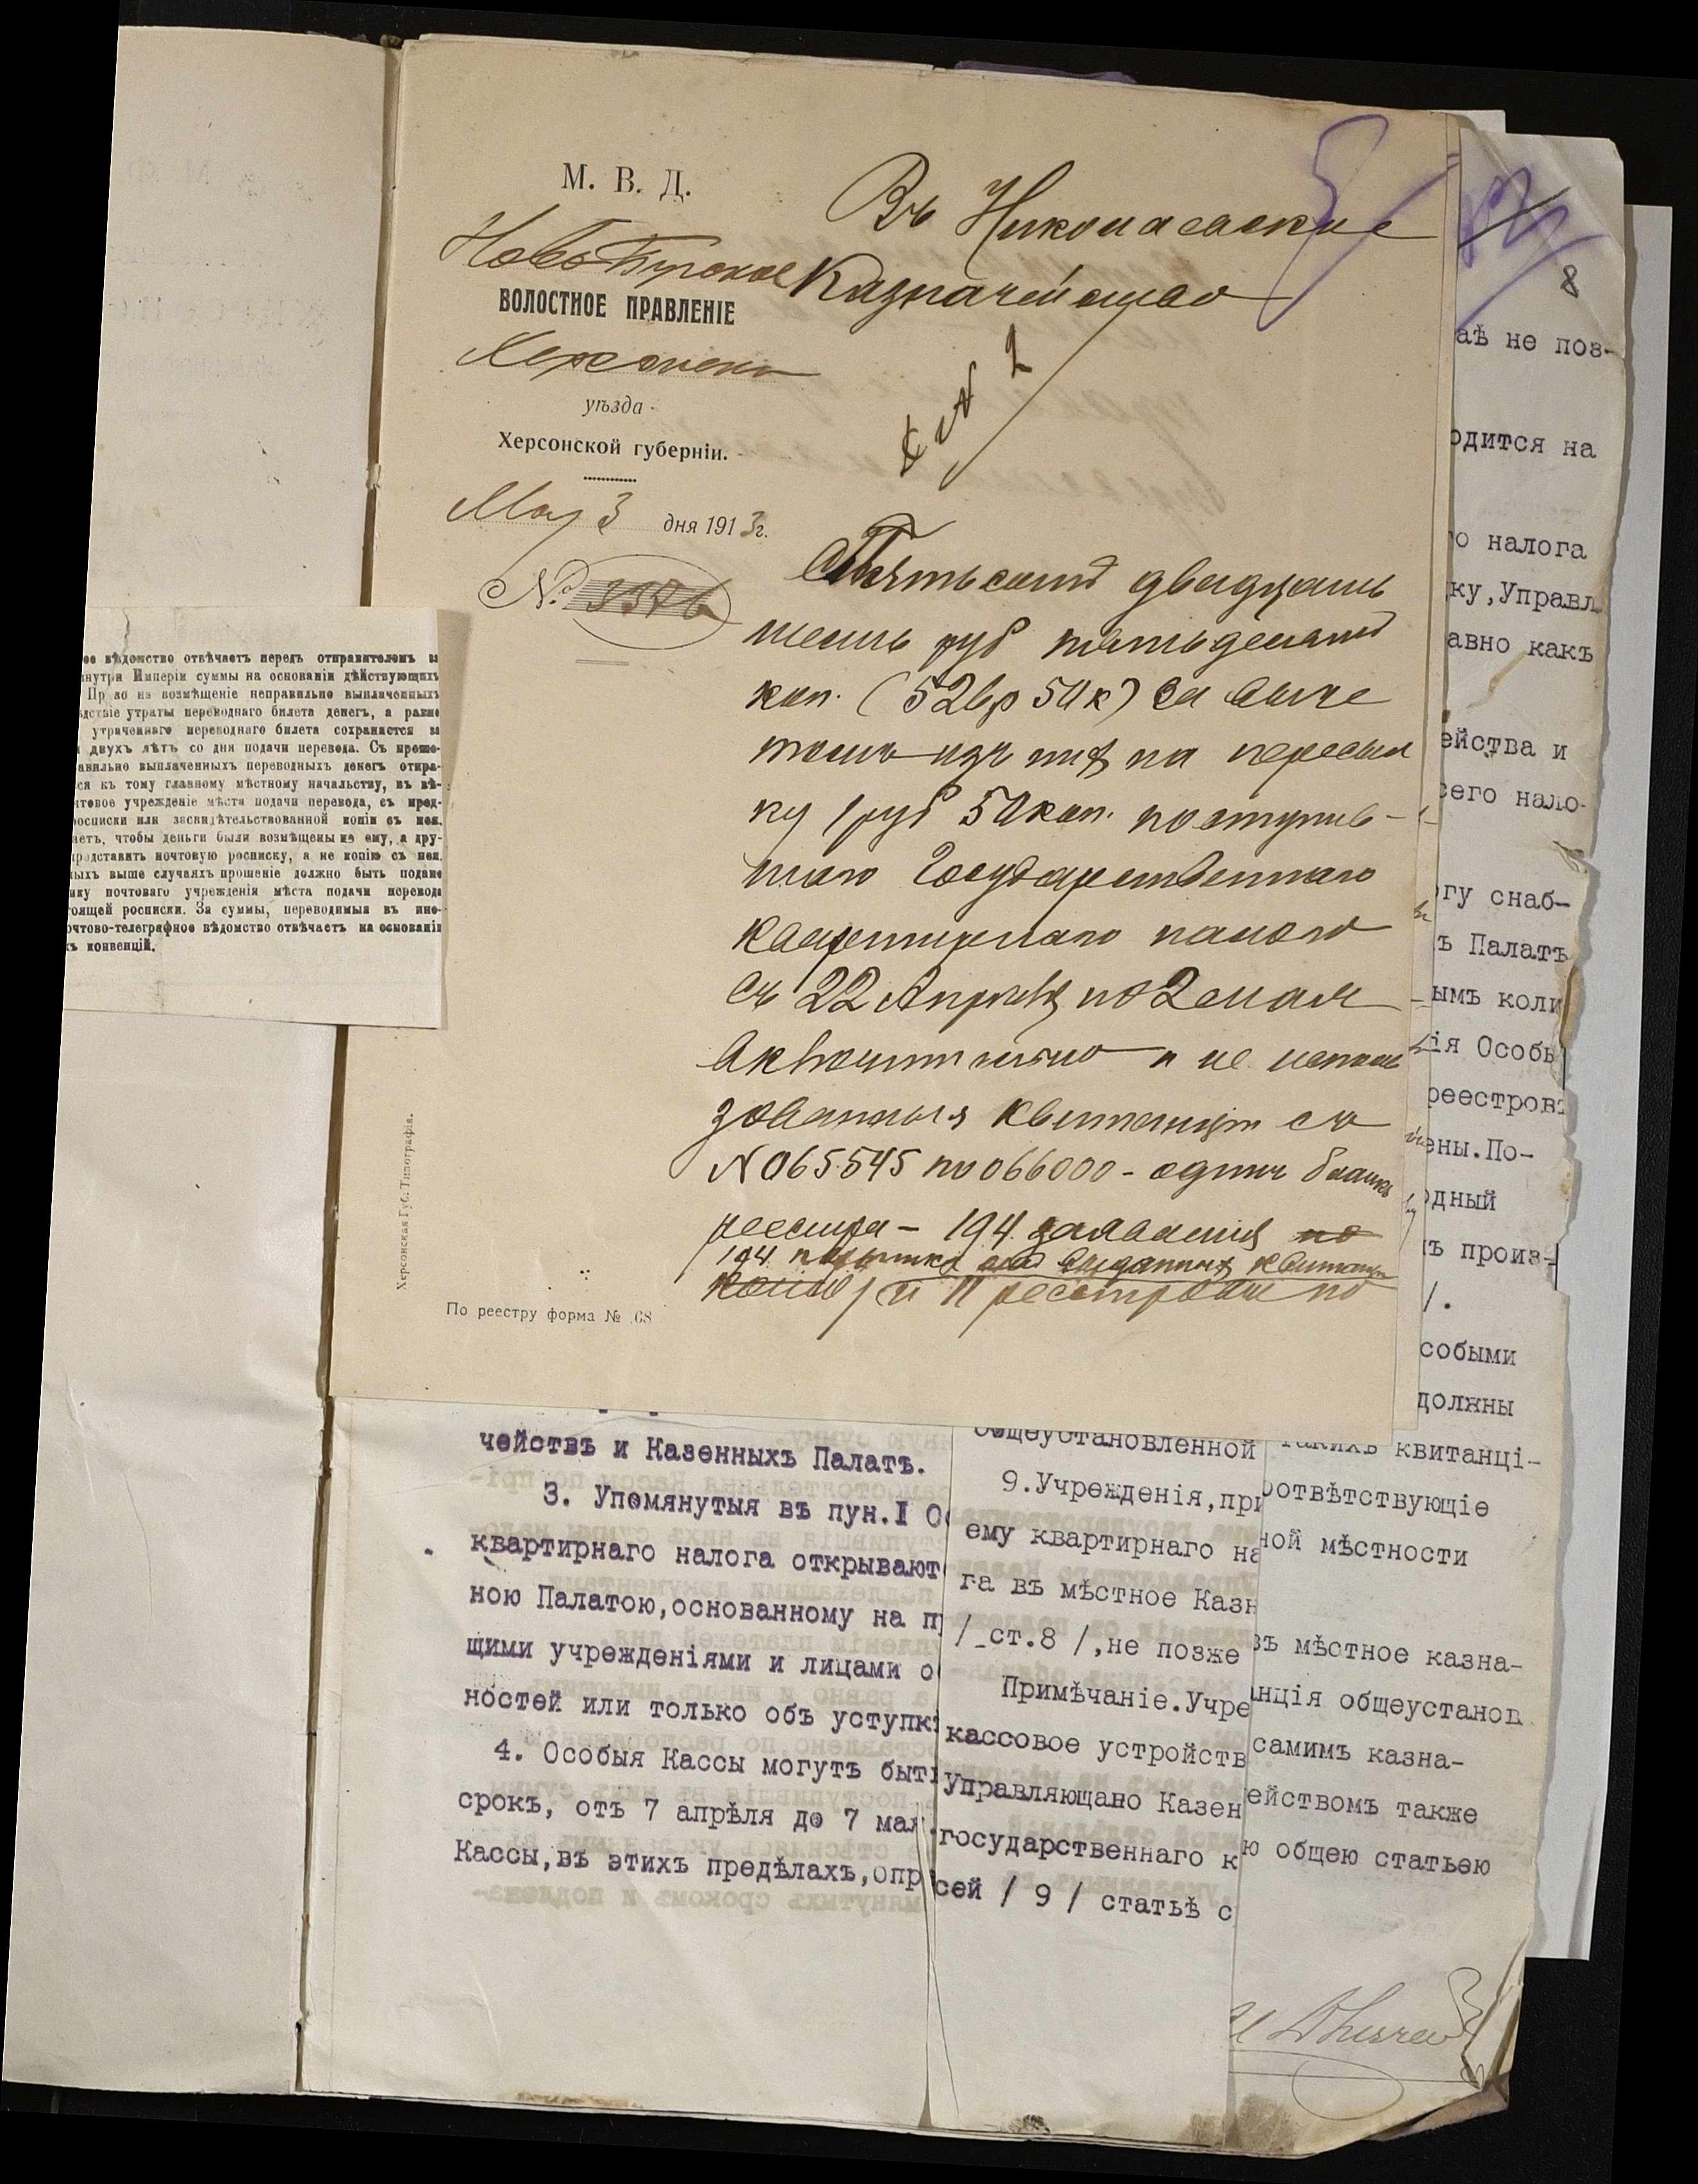 М. В. Д.
Ново Бугское
ВОЛОСТНОЕ ПРАВЛЕНІЕ
Херсонск
уѣзда
Херсонской губерніи.
Мая 3 дня 1913 г.
№ 3376
Въ Николаевское
Казначейство
Пятьсотъ двадцать
шесть руб пятьдесятъ
коп. (526 р 50 к) за выче
томъ изъ нихъ на пересыл
ку 1 руб 50 коп. поступив-
шаго Государственнаго
квартирнаго налога
съ 22 Апрѣля по 2 е мая
включительно и не исполь
зованныя квитанціи съ
N 065545 по 066000 - одинъ бланкъ
реестра - 194 заявленія по
194 выданныхъ квитанц
и реестра по
Херсонская Губ. Типографія.
По реестру форма № 68
ое вѣдомство отвѣчаетъ передъ отправителемъ за
внутри Имперіи суммы на основаніи дѣйствующихъ
Пр во на возмѣщеніе неправильно выплаченныхъ
дствіе утраты переводнаго билета денегъ, а равно
утраченнаго переводнаго билета сохраняется въ
двухъ лѣтъ со дня подачи перевода. Съ проше-
авильно выплаченныхъ переводныхъ денегъ отпра-
ся къ тому главному мѣстному начальству, въ вѣ-
чтовое учрежденіе мѣста подачи перевода, съ пред-
росписки или засвидѣтельствованной копіи съ нея.
аетъ, чтобы деньги были возмѣщены не ему, а дру-
представить почтовую росписку, а не копію съ нея.
ныхъ выше случаяхъ прошеніе должно быть подано
ику почтоваго учрежденія мѣста подачи перевода
тоящей росписки. За суммы, переводимыя въ ино-
очтово-телеграфное вѣдомство отвѣчаетъ на основаніи
хъ конвенцій.
8
аѣ не поз-
одится на
о налога
ку,Управл
авно какъ
ейства и
сего нало-
огу снаб-
ъ Палатъ
ымъ коли
ія Особы
реестровъ
ены.По-
одный
ъ произ-
/.
собыми
должны
такихъ квитанці-
оотвѣтствующіе
ной мѣстности
въ мѣстное казна-
нція общеустанов
самимъ казна-
ействомъ также
ю общею статьею
чействъ и Казенныхъ Палатъ.
3. Упомянутыя въ пун.I О
квартирнаго налога открывают
ною Палатою,основанному на п
щими учрежденіями и лицами о
ностей или только объ уступк
4. Особыя Кассы могутъ быт
срокъ, отъ 7 апрѣля до 7 мая.
Кассы,въ этихъ предѣлахъ,опр
общеустановленной
9.Учрежденія,при
ему квартирнаго на
га въ мѣстное Казн
/ ст.8 /,не позже
Примѣчаніе.Учре
кассовое устройств
Управляющаго Казен
государственнаго к
сей / 9 / статьѣ с